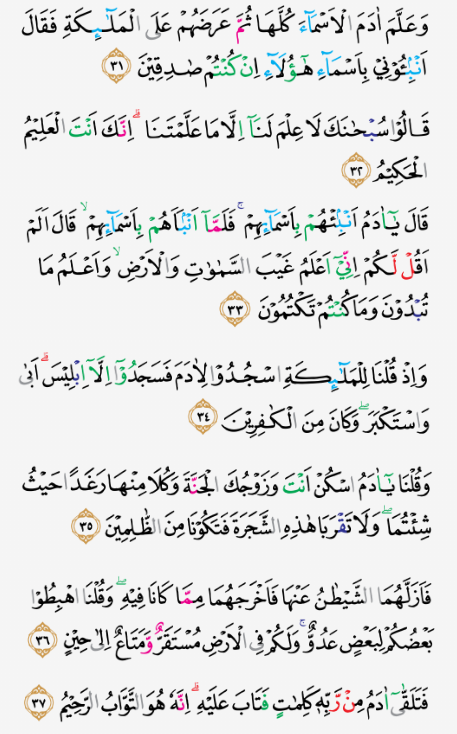 وَعَلَّمَ اٰدَمَ الْاَسْمَآءَ كُلَّهَا ثُمَّ عَرَضَهُمْ عَلَى الْمَلٰۤىِٕكَةِ فَقَالَ
اَنْۢبِـُٔوْنِيْ بِاَسْمَآءِ هٰٓؤُلَآءِ اِنْ كُنْتُمْ صٰدِقِيْنَ ٣١
قَالُوْا سُبْحٰنَكَ لَا عِلْمَ لَنَآ اِلَّا مَا عَلَّمْتَنَا ۗ اِنَّكَ اَنْتَ الْعَلِيْمُ
الْحَكِيْمُ ٣٢
قَالَ يٰٓاٰدَمُ اَنْۢبِئْهُمْ بِاَسْمَآىِٕهِمْ ۚ فَلَمَّآ اَنْۢبَاَهُمْ بِاَسْمَآىِٕهِمْ ۙ قَالَ اَلَمْ
اَقُلْ لَّكُمْ اِنِّيْٓ اَعْلَمُ غَيْبَ السَّمٰوٰتِ وَالْاَرْضِ ۙ وَاَعْلَمُ مَا
تُبْدُوْنَ وَمَا كُنْتُمْ تَكْتُمُوْنَ ٣٣
وَاِذْ قُلْنَا لِلْمَلٰۤىِٕكَةِ اسْجُدُوْا لِاٰدَمَ فَسَجَدُوْٓا اِلَّآ اِبْلِيْسَ ۗ اَبٰى
وَاسْتَكْبَرَ ۖ وَكَانَ مِنَ الْكٰفِرِيْنَ ٣٤
وَقُلْنَا يٰٓاٰدَمُ اسْكُنْ اَنْتَ وَزَوْجُكَ الْجَنَّةَ وَكُلَا مِنْهَا رَغَدًا حَيْثُ
شِئْتُمَا ۖ وَلَا تَقْرَبَا هٰذِهِ الشَّجَرَةَ فَتَكُوْنَا مِنَ الظّٰلِمِيْنَ ٣٥
فَاَزَلَّهُمَا الشَّيْطٰنُ عَنْهَا فَاَخْرَجَهُمَا مِمَّا كَانَا فِيْهِ ۖ وَقُلْنَا اهْبِطُوْا
بَعْضُكُمْ لِبَعْضٍ عَدُوٌّ ۚ وَلَكُمْ فِى الْاَرْضِ مُسْتَقَرٌّ وَّمَتَاعٌ اِلٰى حِيْنٍ ٣٦
فَتَلَقّٰٓى اٰدَمُ مِنْ رَّبِّهٖ كَلِمٰتٍ فَتَابَ عَلَيْهِ ۗ اِنَّهٗ هُوَ التَّوَّابُ الرَّحِيْمُ ٣٧